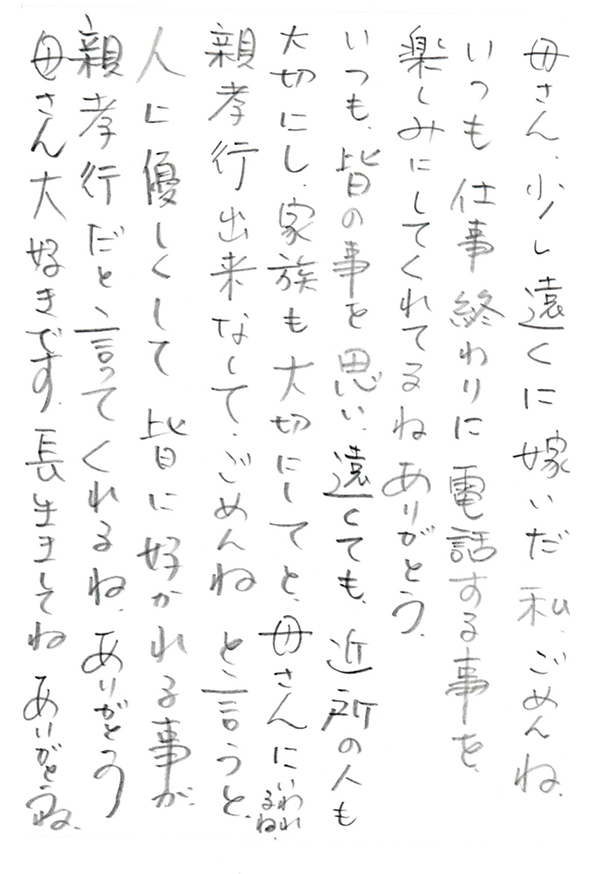 母さん、少し遠くに嫁いだ私、ごめんね、
いつも仕事終わりに電話する事を、
楽しみにしてくれてるねありがとう、
いつも、皆の事を思い、遠くても、近所の人も
大切にし、家族も大切にしてと、母さんにいわれるね、
親孝行出来なして、ごめんねと言うと、
人に優しくして皆に好かれる事が、
親孝行だと言ってくれるね、ありがとう
母さん大好きです、長生きしてねありがとうね、